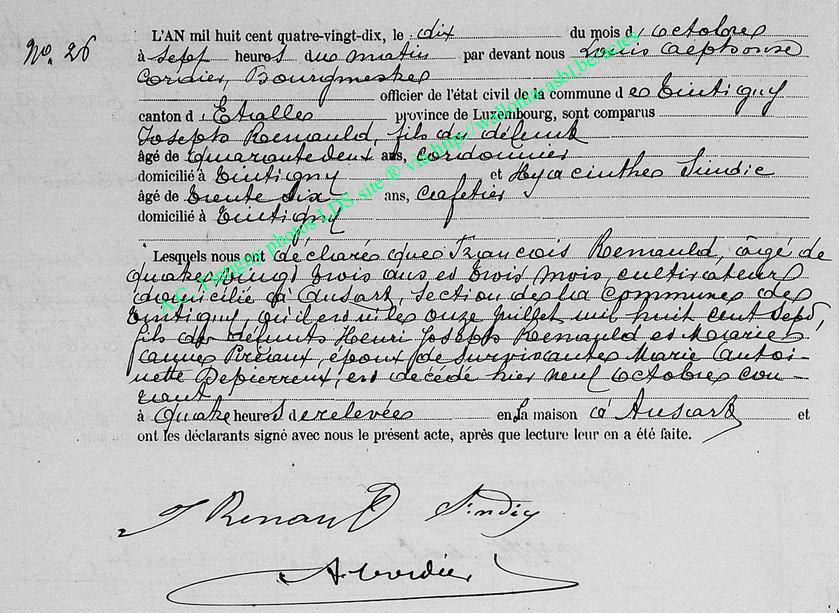 No. 26
L'AN mil huit cent quatre-vingt-dix, le dix du mois d'octobre
à sept heures du matin par devant nous Louis Alphonse
Cordier, Bourgmestre
officier de l'état civil de la commune de Tintigny
canton d'Etalle province de Luxembourg, sont comparus
Joseph Remauld, fils du défunt
âgé de quarante deux ans, cordonnier
domicilié à Tintigny et Hyacinthe Sindic
âgé de trente six ans, cafetier
domicilié à Tintigny
Lesquels nous ont déclaré que François Remauld, âgé de
quatre vingt trois ans et trois mois, cultivateur
domicilié à Ansart, section de la commune de
Tintigny, où il est né le onze juillet mil huit cent sept,
fils de défunts Henri Joseph Remauld et Marie
Jeanne époux de survivante Marie Antoi-
nette Depierreux, est décédé hier neuf octobre cou-
rant
à quatre heures de relevée en la maison à Ansart et
ont les déclarants signé avec nous le présent acte, après que lecture leur en a été faite.
J Renauld Sindic
A. Cordier
A.C. Tintigny photos LDS site ® via http://wallonia.asbl.be/acies